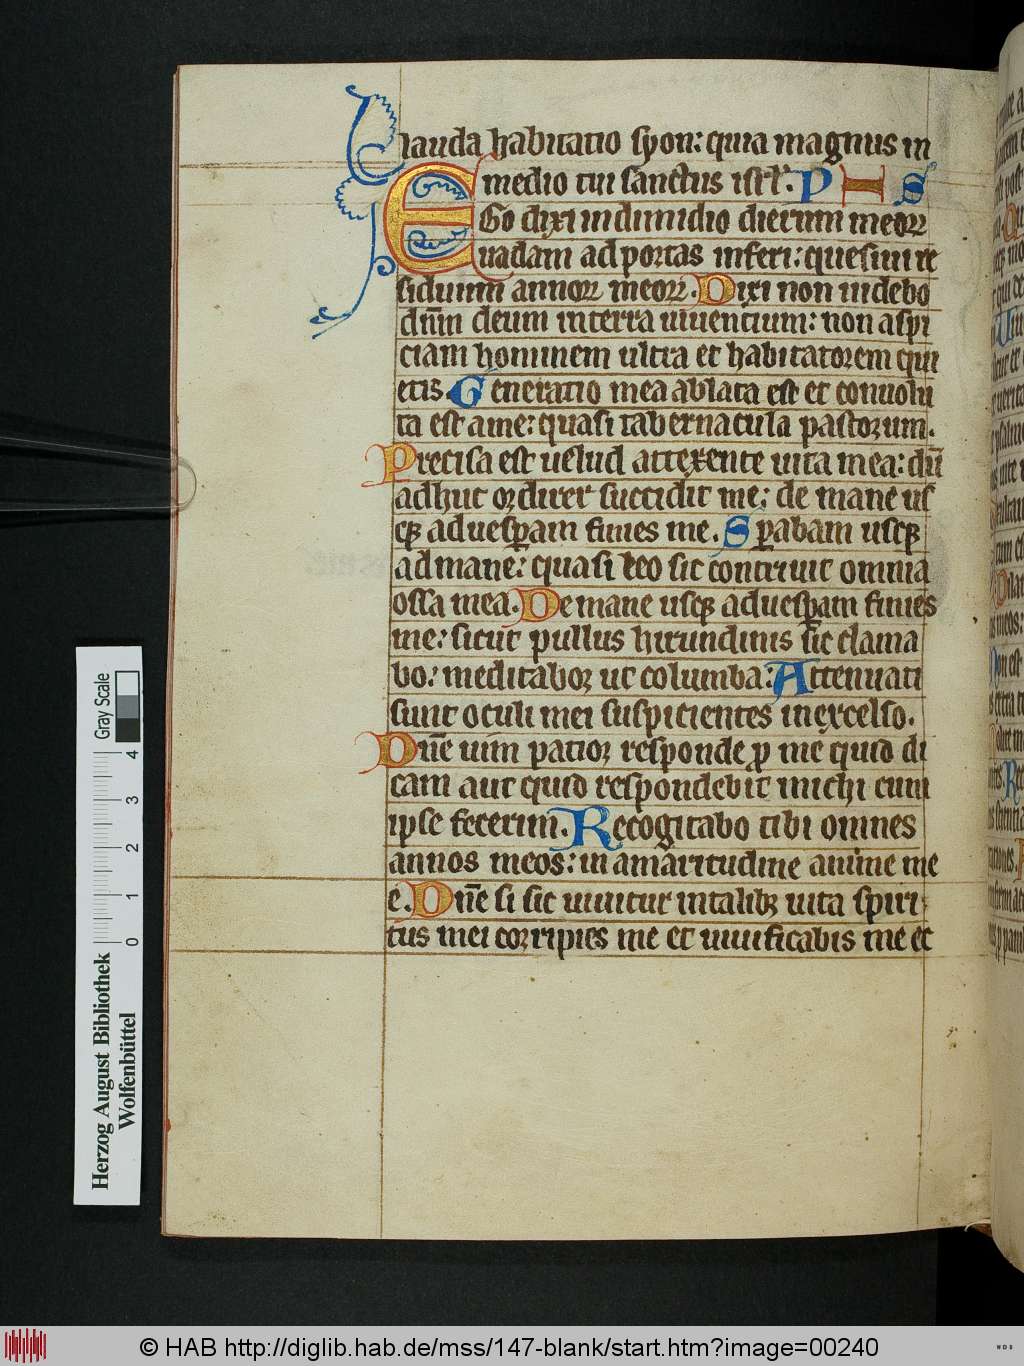 lauda habitatio syon: quia magnus in
medio tui sanctus isrl̄. P H S
EGo dixi in dimidio dierum meoꝝ
vadam ad portas inferi: quesiui re
siduum annoꝝ meoꝝ. Dixi non uidebo
dn̄m deum in terra uiuentium: non aspi
ciam hominem ultra et habitatorem qui
etis. Generatio mea ablata est et conuolu
ta est a me: quasi tabernacula pastorum.
Precisa est uelud a texente uita mea: dū
adhuc ordirer succidit me: de mane us
qꝫ ad uesꝑam finies me. Sꝑabam usqꝫ
ad mane: quasi leo sic contriuit omnia
ossa mea. De mane usqꝫ ad uesꝑam finies
me: sicut pullus hirundinis sic clama
bo: meditabor ut columba: Attenuati
sunt oculi mei suspicientes in excelso.
Dn̄e uim patior responde ꝓ me quid di
cam aut quid respondebit michi cum
ipse fecerim. Recogitabo tibi omnes
annos meos: in amaritudine anime me
e. Dn̄e si sic uiuitur in talibꝫ uita spiri
tus mei corripies me et uiuificabis me et
Gray Scale
0 1 2 3 4
Herzog August Bibliothek
Wolfenbüttel
© HAB http://diglib.hab.de/mss/147-blank/start.htm?image=00240